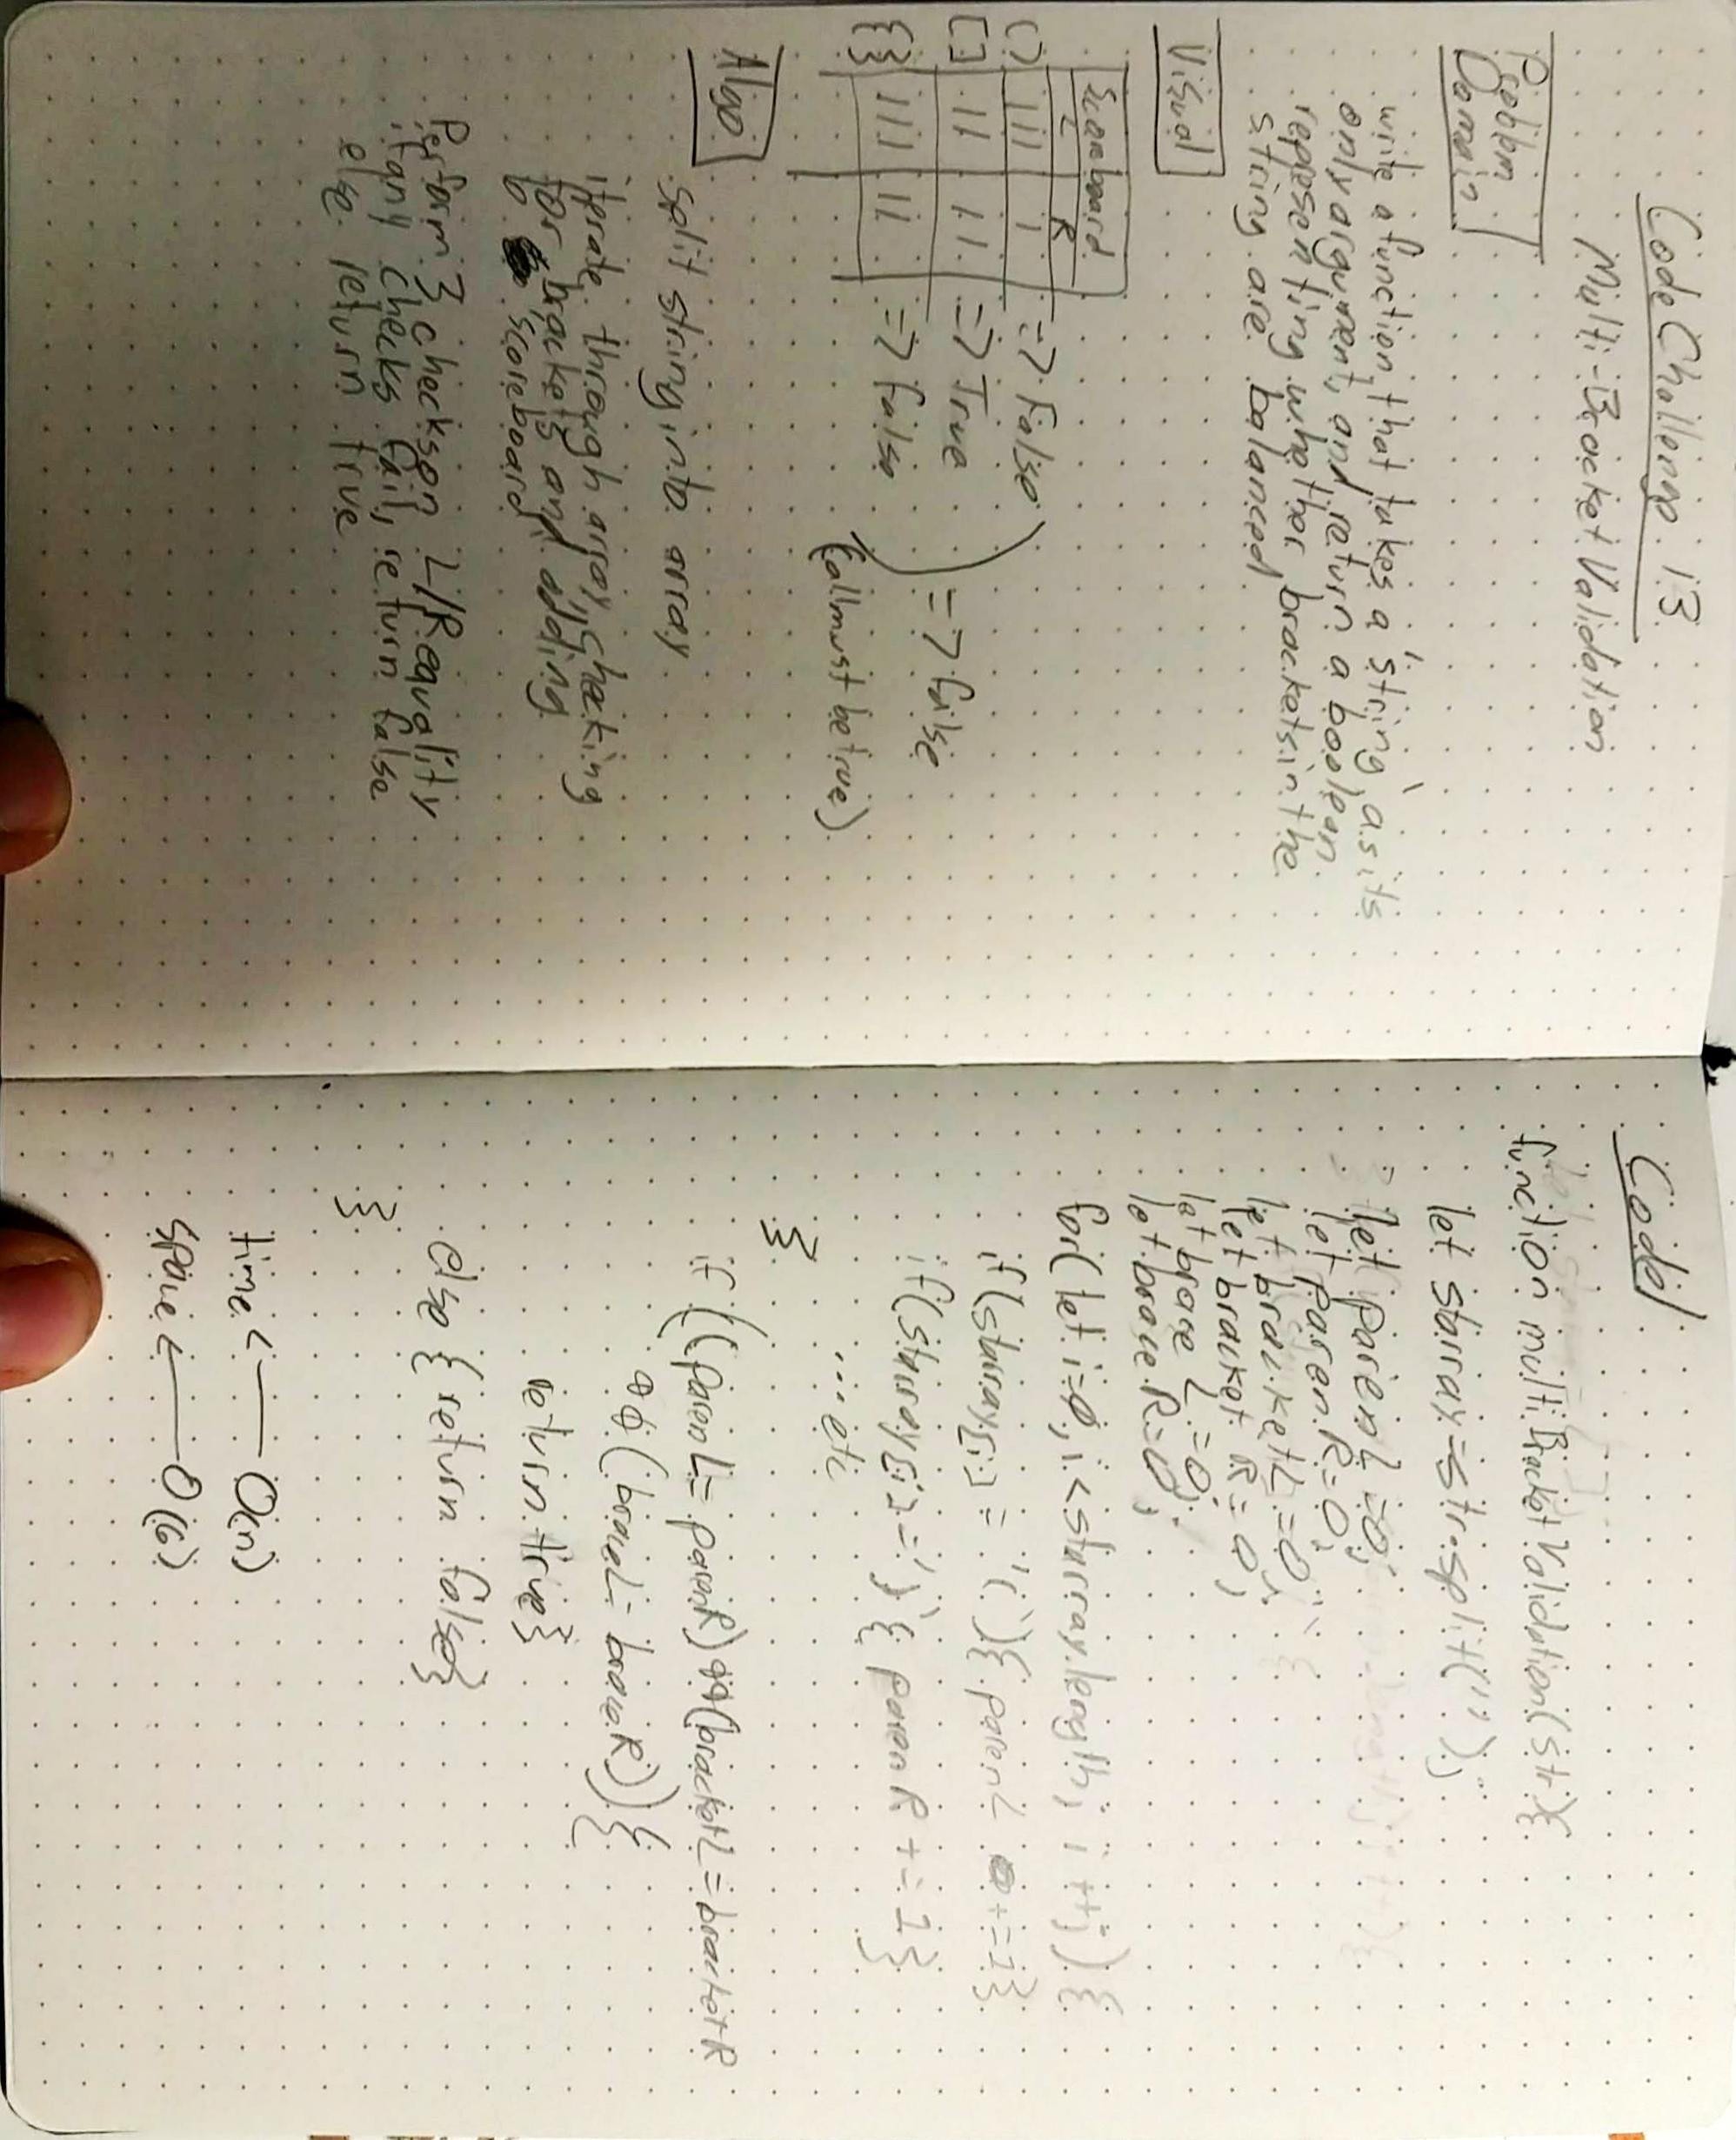 Code Challenge 13
Multi-Bracket Validation
Problem
Domain
write a function that takes a 'string' as its
only argument, and return a boolean
representing whether brackets in the
string are balanced
Visual
Scoreboard
L R
() III I => false
[] II II => True
{} III II => false
=> false
(all must be true)
Algo
split string into array
iterate through array, checking
for brackets and adding
to scoreboard
Perform 3 checks on L/R equality
if any checks fail, return false
else return true
Code
function multiBracketValidation(str){
let starray = str.split('');
let parenL = 0;
let parenR = 0;
let bracketL = 0;
let bracketR = 0;
let braceL = 0;
let braceR = 0;
for(let i=0, i < starray.length; i++){
if(starray[i] = '('){ parenL += 1}
if(starray[i] = ')'{ parenR += 1}
... etc
}
if((parenL = parenR) && (bracketL = bracketR
&& (braceL = braceR)){
return true}
else { return false}
}
time <— O(n)
space <— O(6)